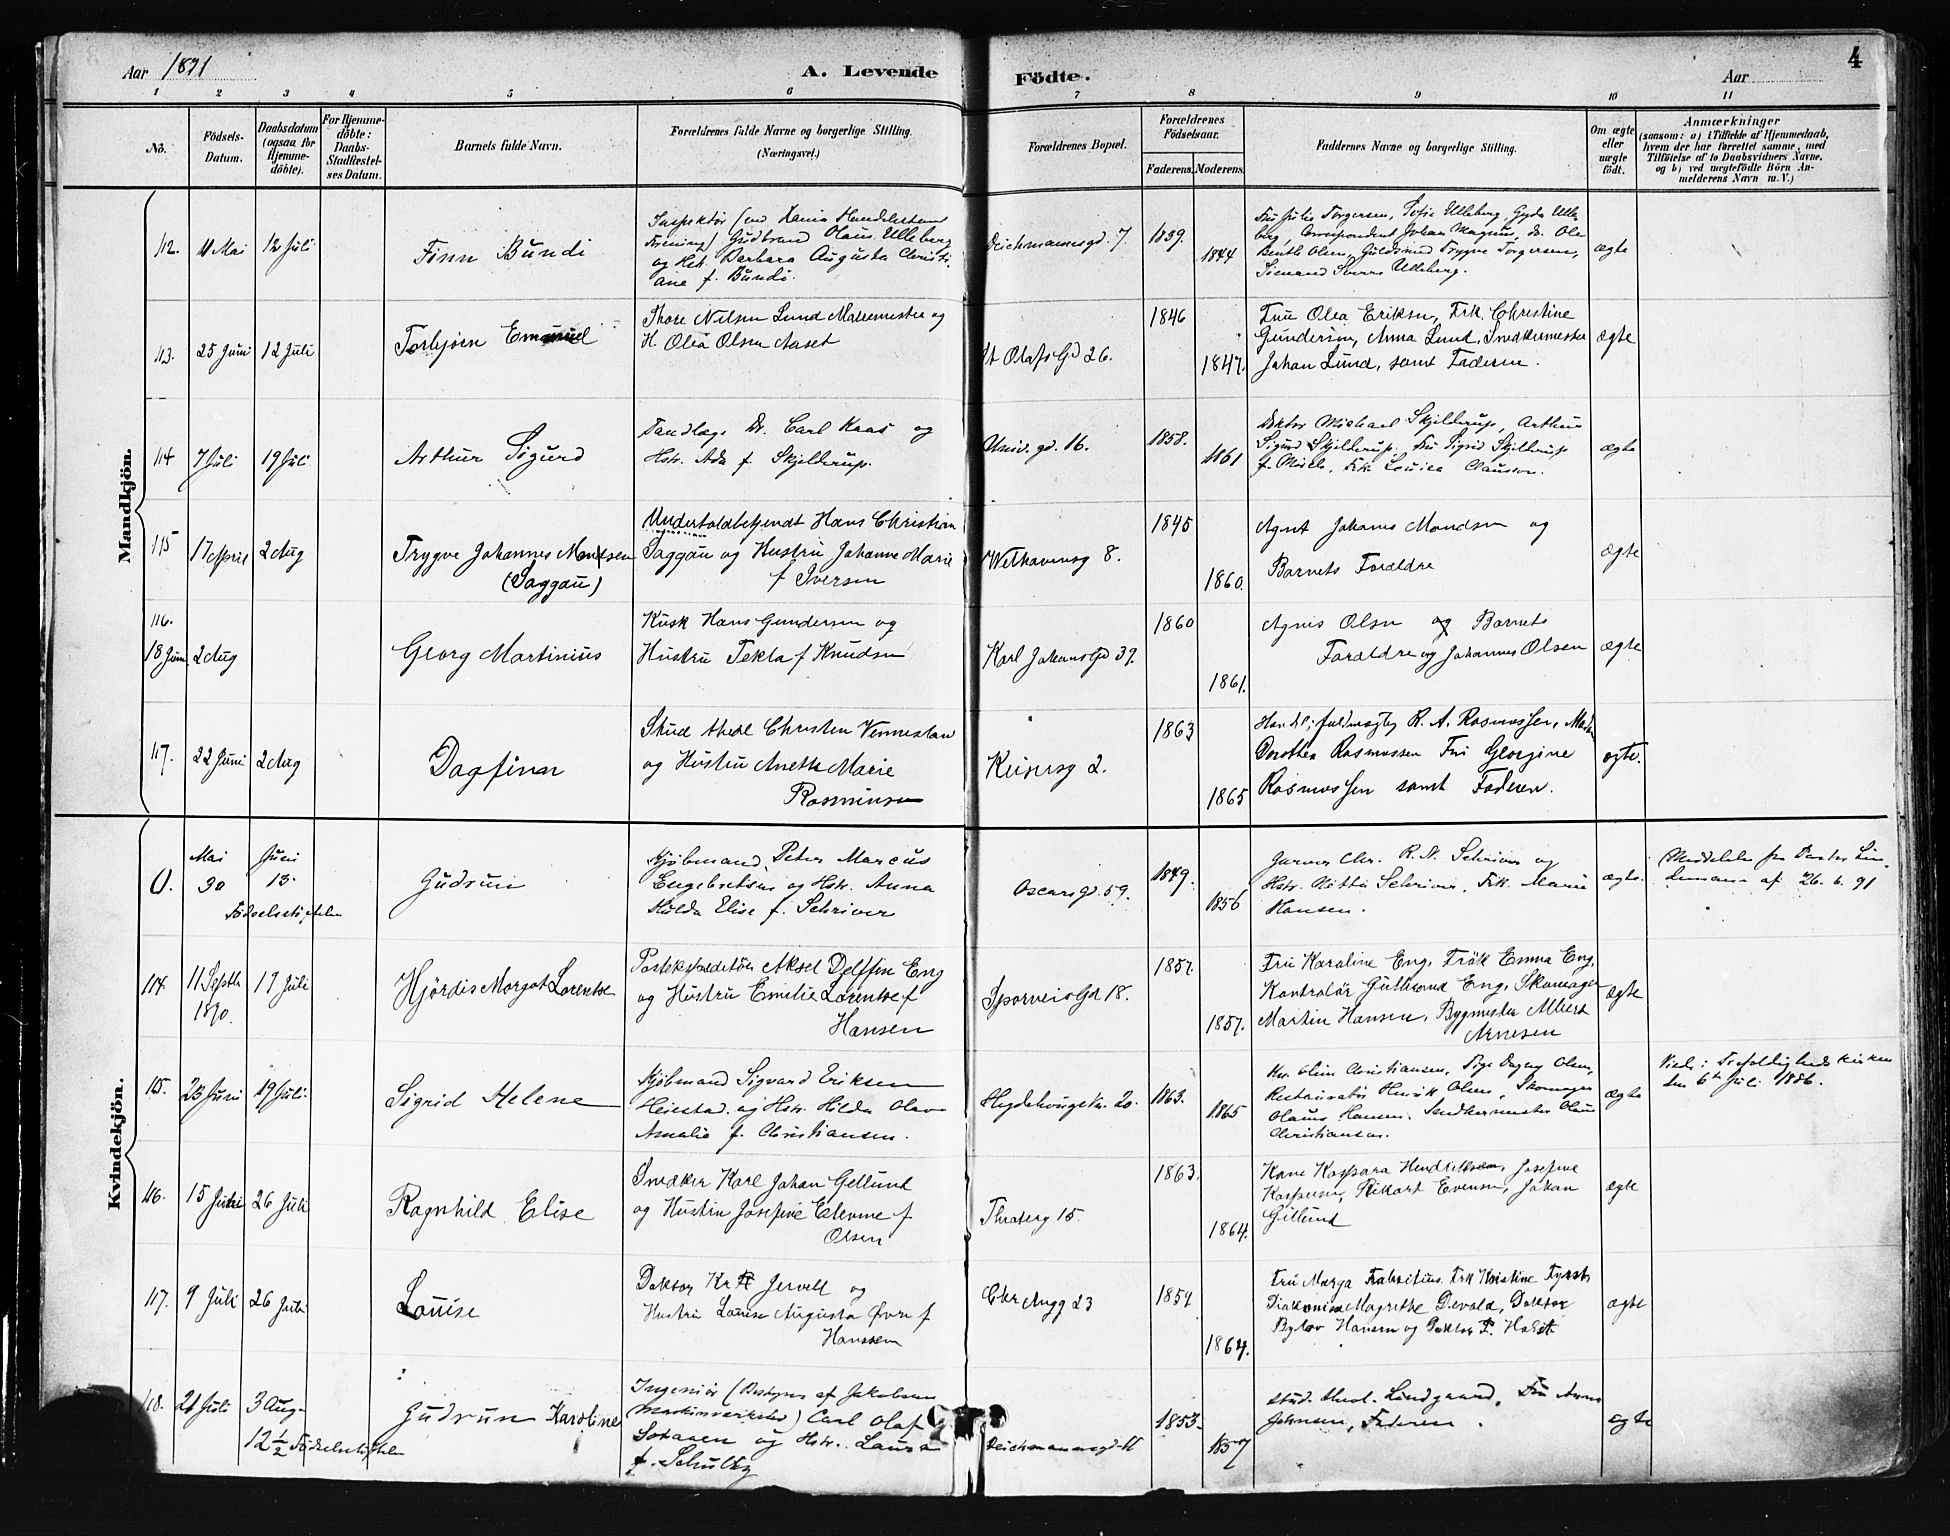 Aar 1891
A. Levende
Födte.
Aar
4
1 2 3 4 5 6 7 8 9 10 11
No.
Födsels-
Datum.
Daabsdatum
(ogsaa for
Hjemme-
döbte).
For Hjemme-
döbte:
Daabs-
Stadfæstel-
ses Datum.
Barnets fulde Navn.
Forældrenes fulde Navne og borgerlige Stilling.
(Næringsvei.)
Forældrenes Bopæl.
Forældrenes
Födselsaar.
Faderens.
Moderens.
Faddernes Navne og borgerlige Stilling.
Om ægte
eller
uægte
födt.
Anmærkninger
(saasom: a) i Tilfælde af Hjemmedaab,
hvem der har forrettet samme, med
Tilföielse af to Daabsvidners Navne,
og b) ved uægtefödte Börn An-
melderens Navn m. V.)
Mandkjön.
112.
11 Mai
12 Juli
Finn Bundi
Inspektør
Gudbrand Olaus Ulleberg
og Hst. Barbara Augusta Christi-
ane f. Bundi.
Deichmannsgd. 7.
1839.
1844
Fru Julie Torgersen, Sofie Ulleberg, Gyda Ulle
berg, Correspondent Johan Magnus, Ole
Olsen, Guldsmed Trygve Torgersen,
Ulleberg.
ægte
113.
25 Juni
12 Juli
Torbjörn Emanuel
Thore Nilsen Lund Malermester og
H. Olea Olsen Aaset
St Olafs Gd 26.
1846
1847.
Fru Olea Eriksen, Frk. Christine
Gundersen, Anna Lund, Snedkermester
Johan Lund, samt Faderen.
ægte
114
7 Juli
19 Juli
Arthur Sigurd
Tandlæge Dr. Carl Kaas og
Hstr. Ada f. Skjelderup.
Univ. gd. 16.
1858.
1861
Doktor Michael Skjelderup, Arthur
Sigurd Skjelderup, Fru Sigrid Skjelderup
Frk Lovisa Clauson.
ægte
115
17 April
2 Aug
Trygve Johannes Mandsen
(Saggau)
Underholdbetjendt Hans Christian
Saggau og Hustru Johanne Marie
f Iversen
Welhavensg 8.
1845
1860.
Agent Johannes Mandsen og
Barnets Forældre
ægte
116.
18 Juni
2 Aug
Georg Martinius
Kusk Hans Gundersen og
Hustru Tekla f Knudsen
Karl Johans Gd 39.
1860
1861.
Agnes Olsen og Barnets
Forældre og Johannes Olsen
ægte
117.
22 Juni
2 Aug
Dagfinn
Stud Christen
og Hustru Anette Marie
Rasmussen
2.
1863
1865
Handl: fuldmægtig R. A. Rasmussen,
Dorothea Rasmussen Fru Georgine
Rasmussen samt Faderen.
ægte.
Kvindekjön.
0.
Mai
30
Juni
13.
Födselsstiftelsen
Gudrun
Kjöbmand Peter Marcus
Engebretsen og Hstr. Anna
Hulda Elise f. Schriver
Oscars gd. 59.
1849.
1856
Garver Chr. R. N. Schriver og
Hstr. Schriver, Frk. Marie
Hansen.
ægte.
Meddelelse fra Pastor Lin-
demann af 26.6.91
114.
11 Septb
1890.
17 Juli
Hjördis Margot Lorentze
Postekspeditör Aksel Delffin Eng
og Hustru Emilie Lorentze f
Hansen
Sporveis Gd 18.
1857.
1857.
Fru Karoline Eng, Frök Emma Eng,
Kontrolör Guthrand Eng, Skomager
Martin Hansen, Bygmester Albert
Arnesen
ægte
115.
23 Juni
19 Juli.
Sigrid Helene
Kjöbmand Sigvard Eriksen
og Hstr. Hilda Olava
Amalie f. Christiansen.
20.
1863.
1865
Christiansen, Pige Dagny Olsen,
Restauratör Henrik Olsen, Skomager
Olaus Hansen, Snedkermester Olaus
Christiansen.
ægte
Viede i Trefoldighedskirken
den 6te Juli 1886.
116.
15 Juni
26 Juli
Ragnhild Elise
Snedker Karl Johan Gellund
og Hustru Josefine f
Olsen
Theaterg 15.
1863.
1864.
Kone Kaspara Hendriksen, Josefine
Kaspersen, Rikart Evensen, Johan
Gellund
ægte
117.
9 Juli
26 Juli
Louise
Doktor Kr Jervell og
Hustru Louise Augusta f
Hanssen
Chr Augg 23
1859
1864.
Fru Marja Fabritius, Frk Kristine
Diakonisse Magrethe Devold, Doktor
Bylov Hansen og Doktor P. Holst
ægte
118.
21 Juli
3 Aug.
12 1/2 Födselsstiftelsen
Gudrun Karoline
Ingeniör (Bestyrer af Jakobsens
) Carl Olaf
og Hstr. Laura
f. Schultz
Deichmannsgd.
1853.
1857
Stud. Lindgaard, Fru Anna
Johnsen, Faderen.
ægte